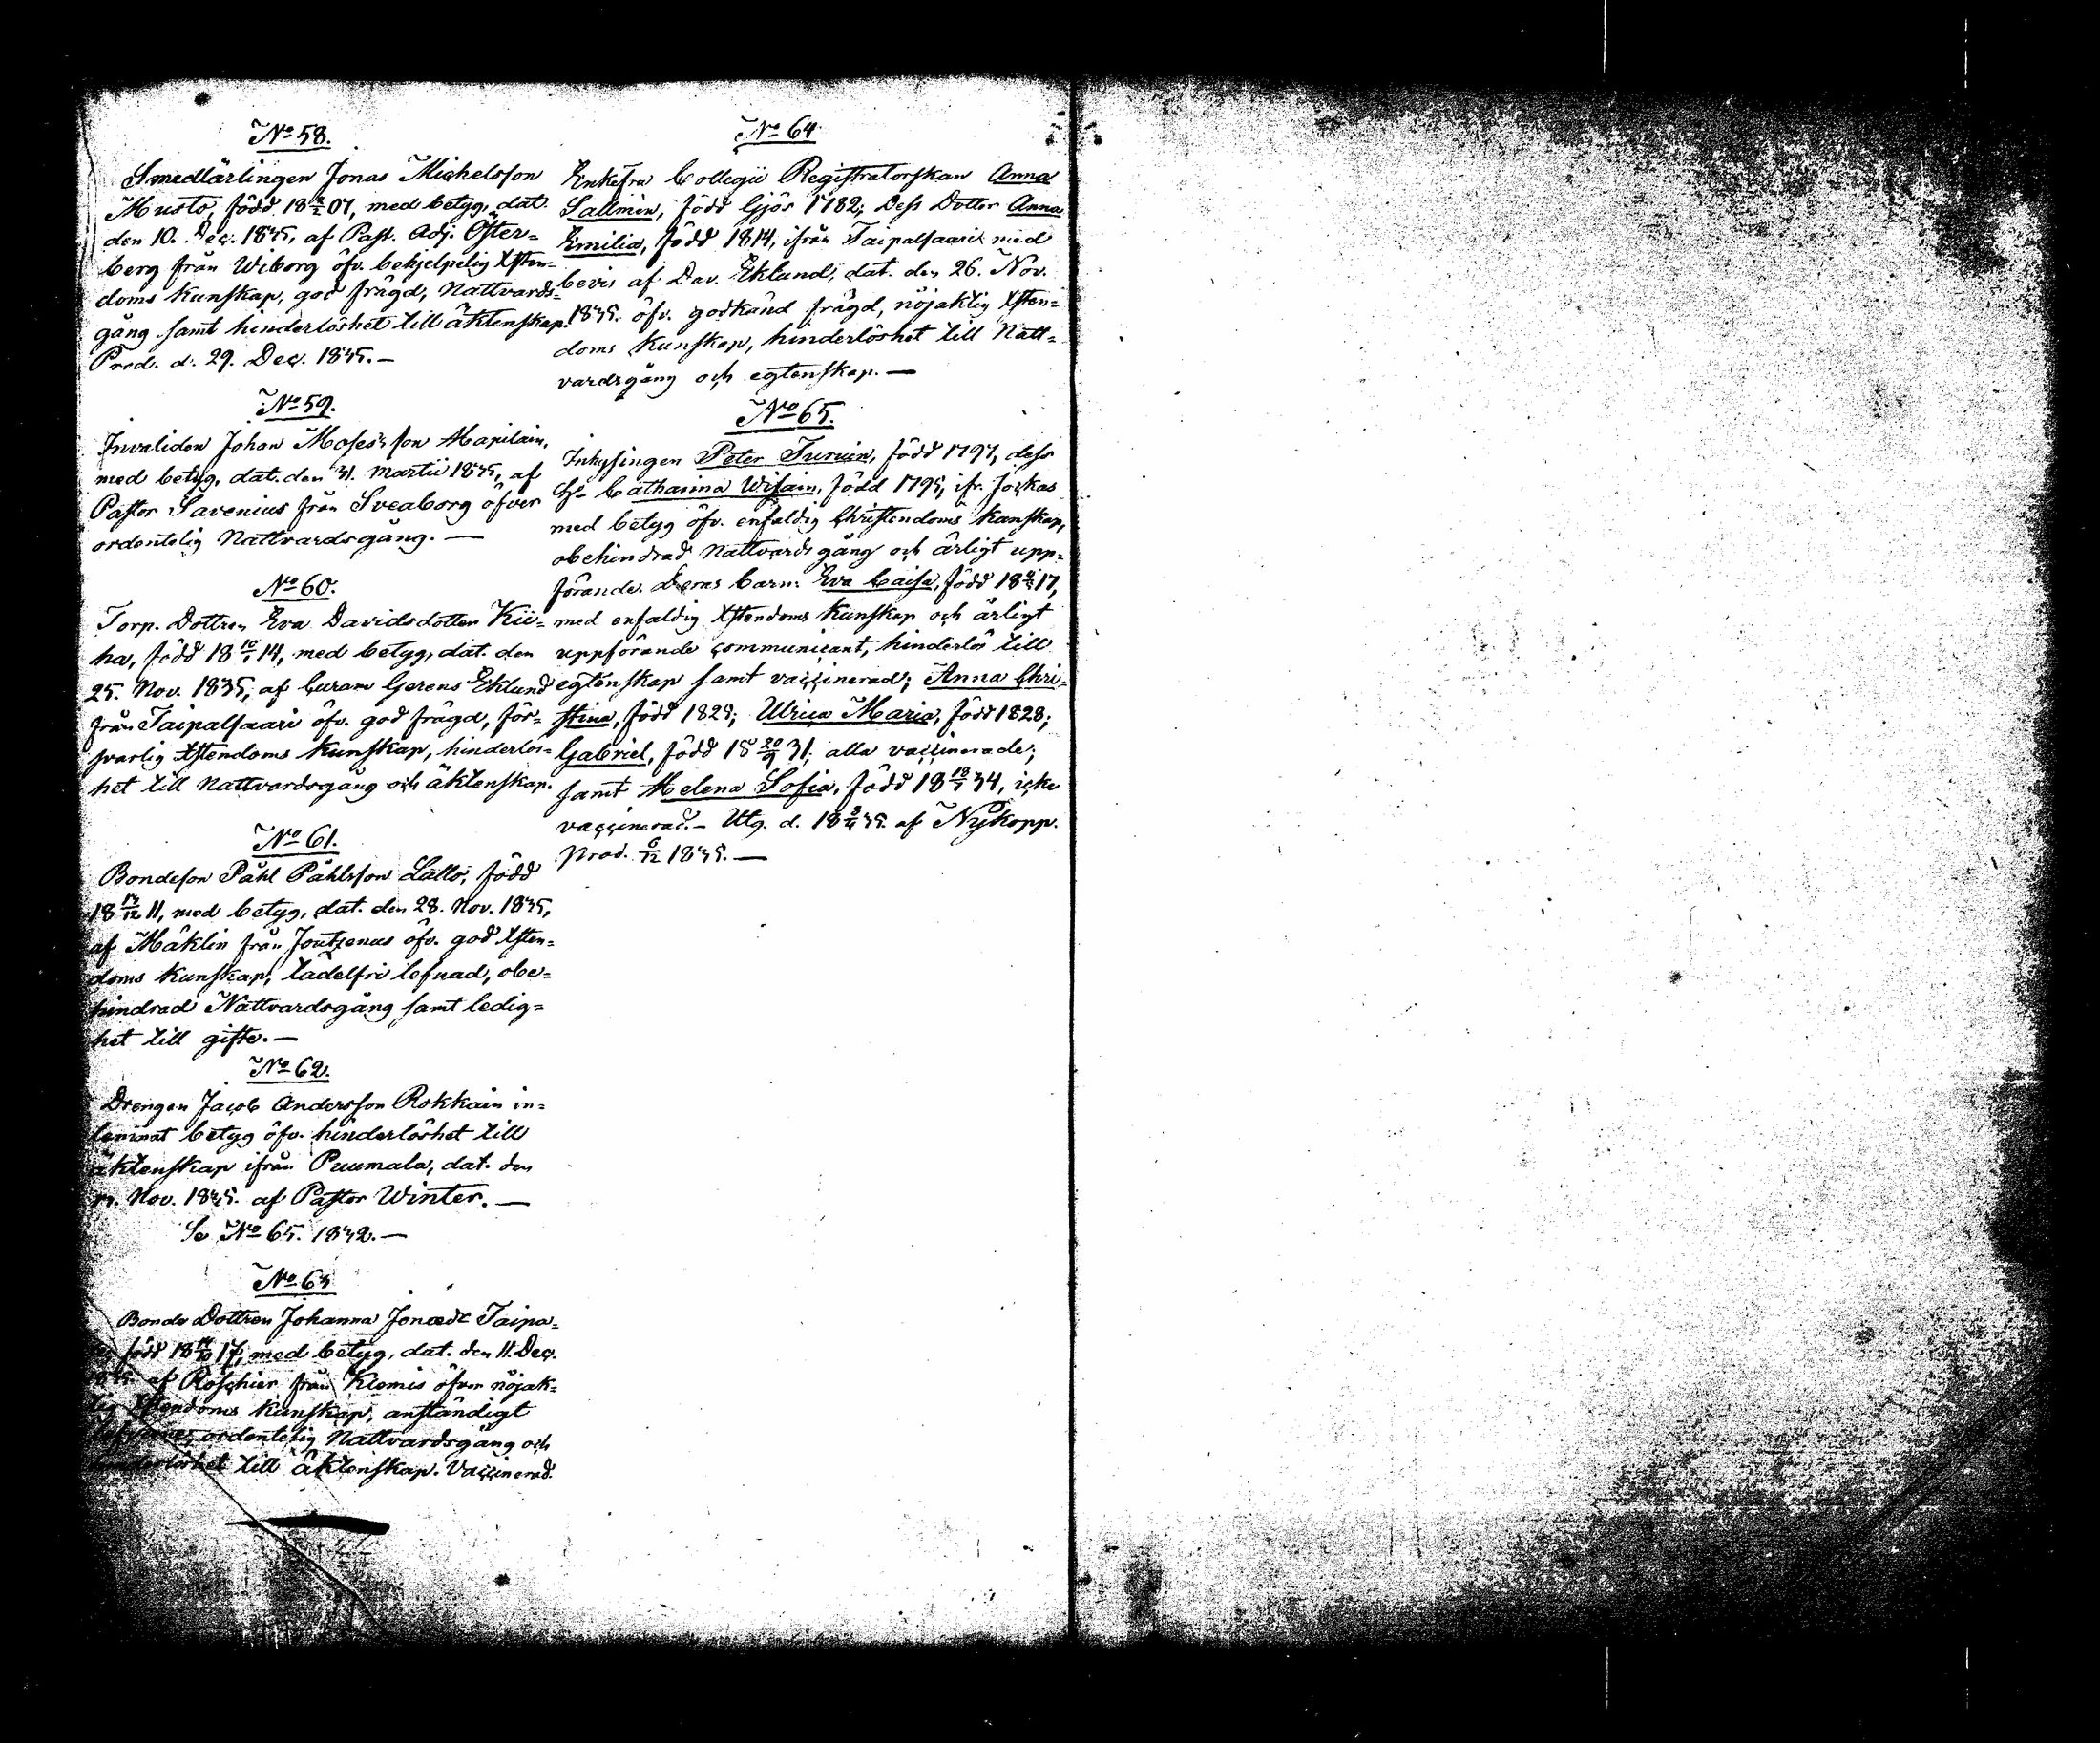 No 58.
Smedlärlingen Jonas Michelsson
Musto, född 18 07, med betyg, dat.
den 10. Dec. 1835, af Past. Adj. Öster-
berg från Wiborg öfv. behjelpelig Xsten-
doms kunskap, god frägd, Nattvards-
gång samt hinderlöshet till äktenskap.
Prod. d. 29. Dec. 1835. —
No 59.
Invaliden Johan Moses's son
med betyg, dat. den 31. Martii 1835, af
Pastor Savenius från Sveaborg öfver
ordentelig Nattvardsgång. —
No 60.
Torp. Dottren Eva Davidsdotter Kii-
ha, född 18 10/1 14, med betyg, dat. den
25. Nov. 1835, af Curam Gerens Eklund
från Taipalsaari öfv. god frägd, för-
svarlig Xstendoms kunskap, hinderlös-
het till Nattvardsgång och äktenskap.
No 61.
Bondeson Påhl Påhlsson Lallo, född
18 13/12 11, med betyg, dat. den 28. Nov. 1835,
af Mäklin från Joutzenus öfv. god Xsten-
doms kunskap, tadelfri lefnad, obe-
hindrad Nattvardsgång samt ledig-
het till gifte. —
No 62.
Drengen Jacob Andersson Rokkain in-
lemnat betyg öfv. hinderlöshet till
äktenskap ifrån Puumala, dat. den
Nov. 1835. af Pastor Winter. —
Se No 65. 1832. —
No 63
Bonde Dottren Johanna Jonædr Taipa-
född 18 17, med betyg, dat. den 11. Dec.
1835 af Roschier från Klemis öfver nöjak-
lig Xstendoms kunskap, anständigt
ordentelig Nattvardsgång och
hinderlöshet till äktenskap. Vaccinerad.
No 64
Enkefru Collegii Registratorskan Anna
Sallmén, född Gjös 1782; Dess Dotter Anna
Emilia, född 1814, ifrån Taipalsaari med
bevis af Dav. Eklund, dat. den 26. Nov.
1835. öfv. godkänd frägd, nöjaklig Xsten-
doms kunskap, hinderlöshet till Natt-
vardsgång och egtenskap. —
No 65.
Inhysingen Peter Turuin, född 1797, dess
Ha Catharina Wisain, född 1795, ifr. Jockas
med betyg öfv. enfaldig Christendoms kunskap,
obehindrad Nattvardsgång och ärligt upp-
förande. Deras barn: Eva Caisa, född 18 17,
med enfaldig Xstendoms kunskap och ärligt
uppförande communicant, hinderlös till
egtenskap samt vaccinerad; Anna Chri-
stina, född 1825; Ulrica Maria, född 1828;
Gabriel, född 18 20/9 31; alla vaccinerade;
samt Helena Sofia, född 18 18/7 34, icke
vaccinerad. — Utg. d. 18 35. af Nykopp.
Prod. 6/12 1835. —